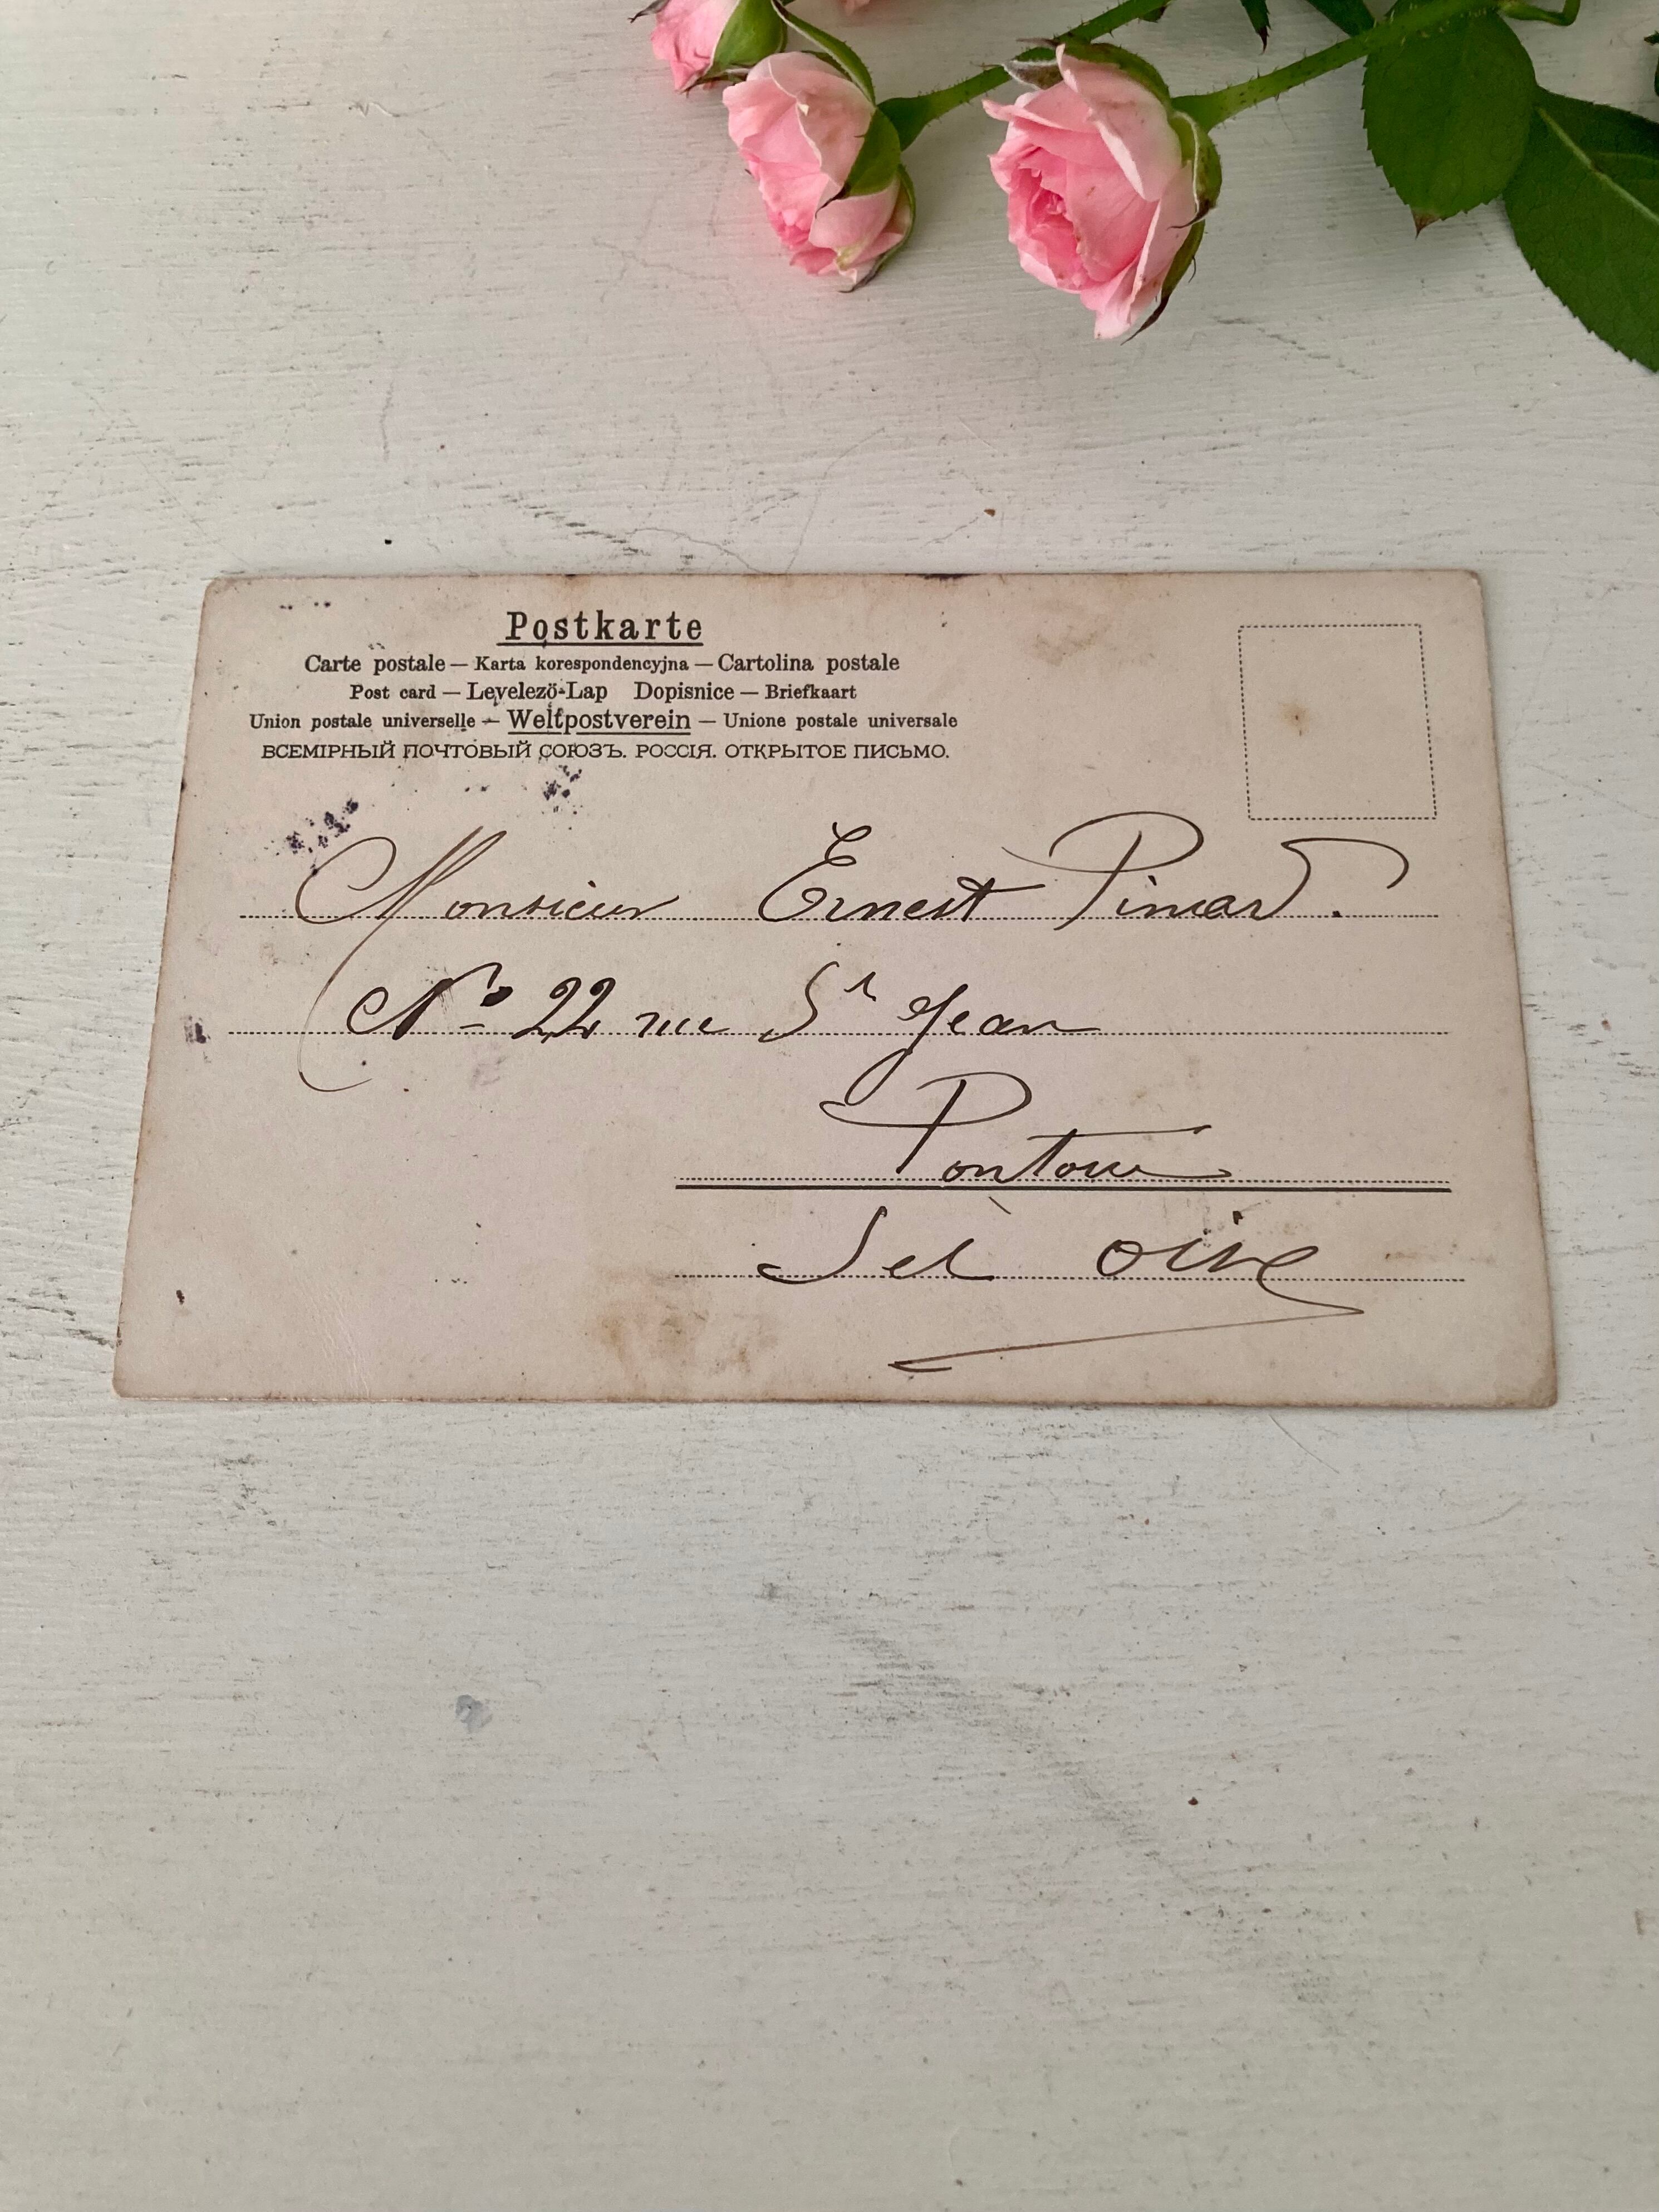 Postkarte
Carte postale — Karta korespondencyjna — Cartolina postale
Post card — Levelezö-Lap Dopisnice — Briefkaart
Union postale universelle — Weltpostverein — Unione postale universale
ВСЕМІРНЫЙ ПОЧТОВЫЙ СОЮЗЪ. РОССІЯ. ОТКРЫТОЕ ПИСЬМО.
Monsieur Ernest Pinard.
No 22 rue St Jean
Pontoise
S et oise